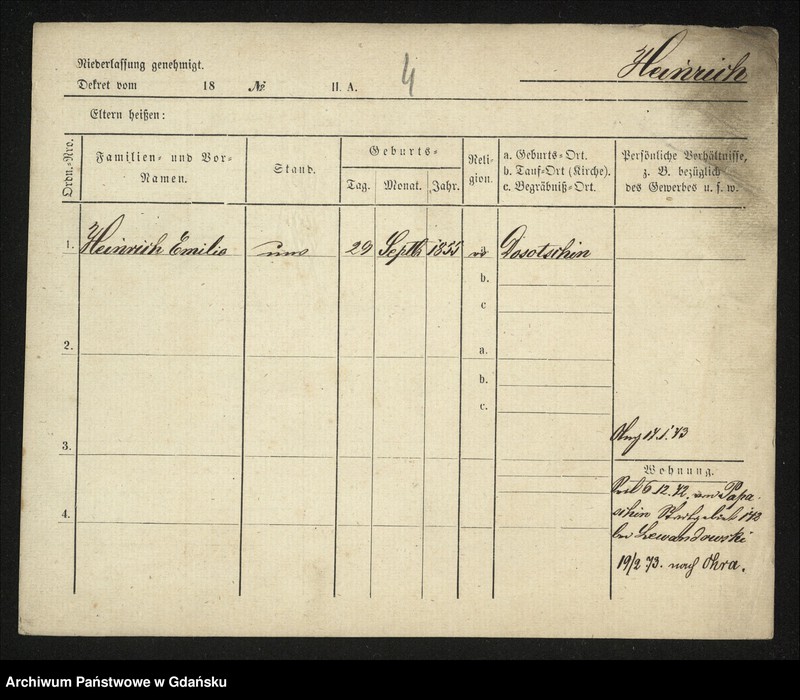 Niederlassung genehmigt.
Heinrich
Dekret vom 18 № II. A. 4
Eltern heißen:
Ordn.-Nro.
Familien- und Vor-
Namen.
Stand.
Geburts-
Tag. Monat. Jahr.
Reli-
gion.
a. Geburts-Ort.
b. Tauf-Ort (Kirche).
c. Begräbniß-Ort.
Persönliche Verhältnisse,
z. B. bezüglich
des Gewerbes u. s. w.
1. Heinrich Emilie 29 Septb 1855
b.
c
2. a.
b.
c.
17.1.73
3.
Wohnung.
6.12.72. von Papa-
schin Stadtgebiet 142
bei Lewandowski
4.
19/2 73. nach Ohra.
Archiwum Państwowe w Gdańsku